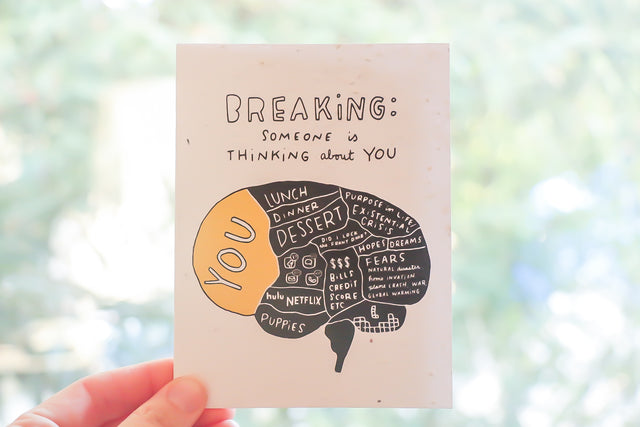 BREAKING:
SOMEONE is
THINKING about YOU
YOU
LUNCH
DINNER
DESSERT
DID I LOCK
the FRONT DOOR?
PURPOSE in LIFE
EXISTENTIAL
CRISIS
HOPES
DREAMS
$$$
BILLS
CREDIT
SCORE
ETC
FEARS
NATURAL disaster
home INVASION
plane CRASH, WAR
GLOBAL WARMING
hulu
NETFLIX
PUPPIES